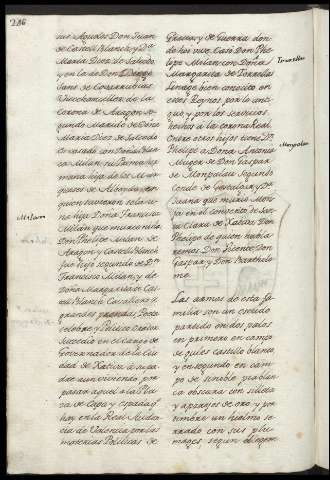 286
sus Aguelos Don Juan
de Castell Blanch y Dª
Maria Diez de Salcedo
y en la de Don
Sans de Cosarrubias
Vicechanciller de la
Corona de Aragon se-
gundo Marido de Doña
Maria Diez de Salcedo
casada con Doña
Milan su Prima her-
mana hija de los Mar-
queses de Albayda de
quien tuvieron sola u-
na hija Doña Francisca
Milan que murio niña
Don Phelipe Milan de
Aragon y Castell Blanch
fue hijo segundo de Dn
Francisco Milan y de
Doña Margarita de Cas-
tell Blanch Cavallero de
grandes prendas Poeta
celebre y Politico
sucedio en el cargo de
Governador de la Ciu-
dad de Xativa a su pa-
dre aun viviendo, por
pasar aquel a la Pla-
za de Capa y espada q̃
hay en la Real Audien-
cia de Valencia por las
materias Politicas de
Milan
Govierno y Guerra don-
de hoi vive. Casó Don Phe-
lipe Milan con Doña
Margarita de Torrellas
Linage bien conocido en
estos Reynos por lo anti-
guo y por los servicios
hechos a la corona Real
tiene
Phelipe a Doña Antonia
Muger de Don Gaspar
de Monpalau Segundo
Conde de Gestalgar y Dª
Juana que murio Mon-
ja en el convento de San-
ta Clara de Xativa Don
Phelipe de quien habla-
remos Don Vicente Don
Gaspar y Don Bartholo-
me.
Torrellas
Monpalau
Las armas de esta fa-
milia son un escudo
partido en dos palos
en primero en campo
de gules castillo blanco
y en segundo en cam-
po de sinoble
obscura con silleta
y aparejos de oro y por
timbre un hielmo se-
rrado con sus plu-
mages segun el orden